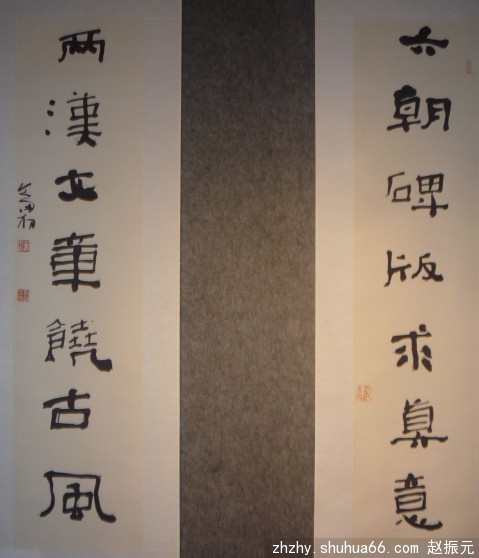 六朝碑版求真意
两漢文章饒古風
zhzhy.shuhua66.com 赵振元